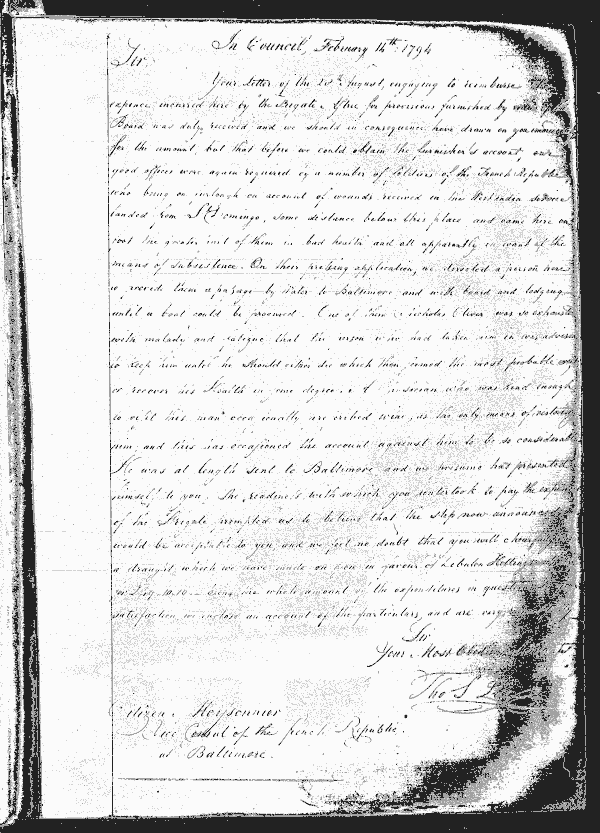 In Council February 14th 1794
Sir
Your Letter of the August, engaging to reimburse the
expence incurred here by the Frigate for provisions furnished by
Board was duly received and we should in consequence have drawn on you
for the amount, but that before we could obtain the furnisher's account, our
good offices were again required by a number of Soldiers of the French Republic
who being on furlough on account of wounds received in his service
landed from St Domingo, some distance below this place and came here on
foot the greater part of them in bad health and all apparently in want of the
means of subsistence. On their pressing application, we directed a person here
to provide them a passage by water to Baltimore and with board and lodging
until a boat could be procured. One of them Nicholas Oliver was so exhausted
with malady and fatigue that the person who had taken him in was advised
to keep him until he should either die which then seemed the most probable
or recover his Health in some degree. A Physician who was kind enough
to visit this man occasionally prescribed wine, as the only means of restoring
him, and this has occasioned the account against him to be so considerable
He was at length sent to Baltimore and we presume has presented
himself to you. The readiness with which you undertook to pay the
of the Frigate prompted us to believe that the step now
would be acceptable to you, and we feel no doubt that you will
a draught which we have made on you in favour of
the whole amount of the expenditures in
satisfaction, we enclose an account of the particulars, and are very
Sir
Your Most
Tho S
Citizen Moissonnier
Vice Consul of the french Republic
at Baltimore.